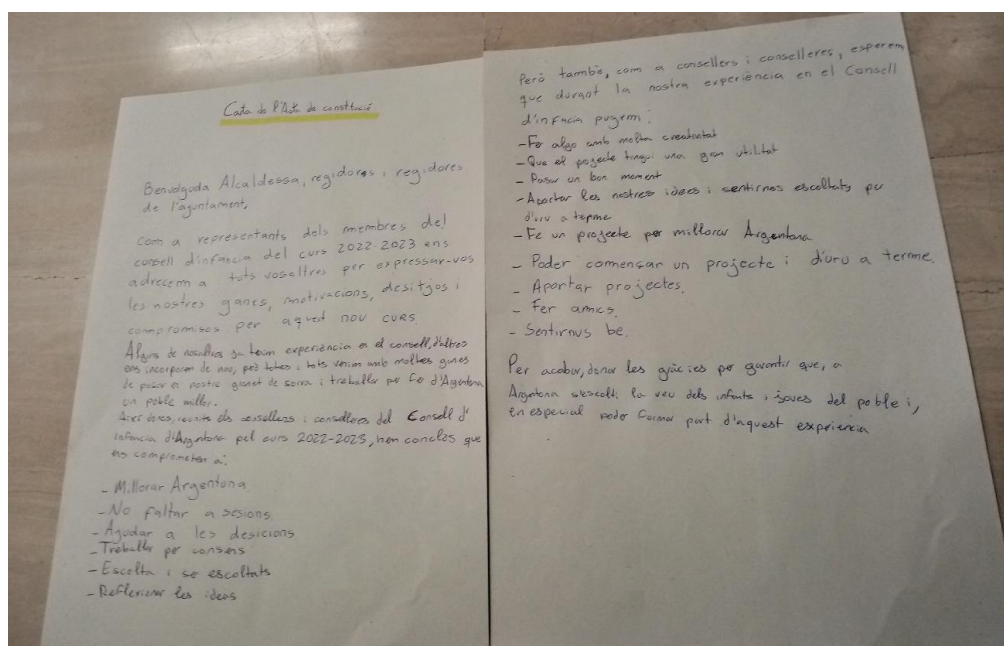 Carta de l'Acte de constitució
Benvolguda Alcaldessa, regidores i regidores
de l'ajuntament,
Com a representants dels membres del
consell d'infancia del curs 2022-2023 ens
adrecem a tots vosaltres per expressar-vos
les nostres ganes, motivacions, desitjos i
compromisos per aquest nou curs.
Alguns de nosaltres ja tenim experiència en el consell, d'altres
ens incorporem de nou, però totes i tots venim amb moltes ganes
de posar el nostre granet de sorra i treballar per fe d'Argentona
un poble millor.
Així doncs, reunits els consellers i conselleres del Consell d'
infancia d'Argentona pel curs 2022-2023, hem conclòs que
ens comprometem a:
- Millorar Argentona
- No faltar a sesions.
- Ajudar a les desicions
- Treballar per consens
- Escolta i se escoltats
- Reflexionar les idees
Però també, com a consellers i conselleres, esperem
que durant la nostra experiència en el Consell
d'infacia pugem:
- Fe algo amb molta creativitat
- Que el pojecte tingui una gran utilitat
- Pasar un bon moment
- Aportar les nostres idees i sentirnos escoltats per
d'uru a terme
- Fe un projecte per millorar Argentona
- Poder començar un projecte i d'uru a terme.
- Aportar projectes.
- Fer amics.
- Sentirnus be.
Per acabar, donar les gràcies per garantir que, a
Argentona s'escolti la veu dels infants i joves del poble i,
en especial poder formar part d'aquest experiencia